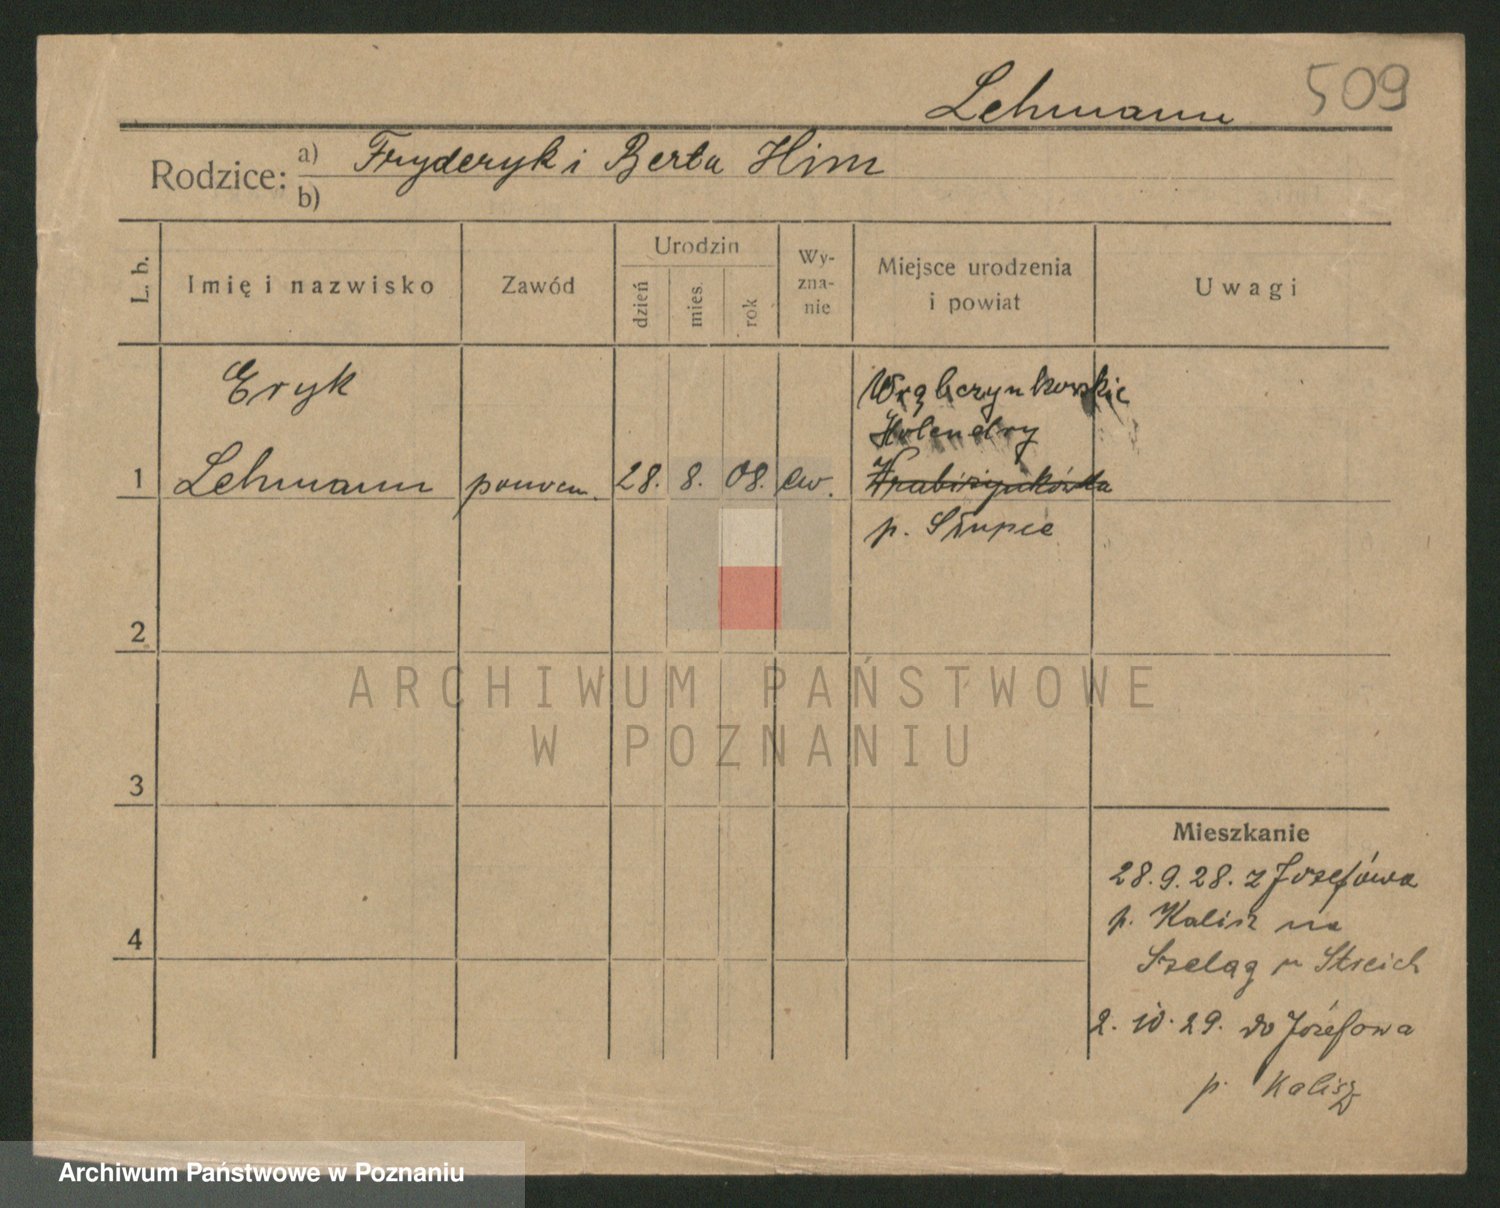 Lehmann 509
Rodzice: a) Fryderyk i Berta Him
b)
L. b. Imię i nazwisko Zawód Urodzin dzień mies. rok Wy-zna-nie Miejsce urodzenia i powiat Uwagi
Eryk Wrąbczynkowskie
Holendry
1 Lehmann 28. 8. 08. ew.
p. Słupca
2
ARCHIWUM PAŃSTWOWE
W POZNANIU
3
Mieszkanie
28.9.28. z Józefówa
p. Kalisz na
4
Szeląg Streich
2. 10. 29. do Józefowa
p. Kalisz
Archiwum Państwowe w Poznaniu